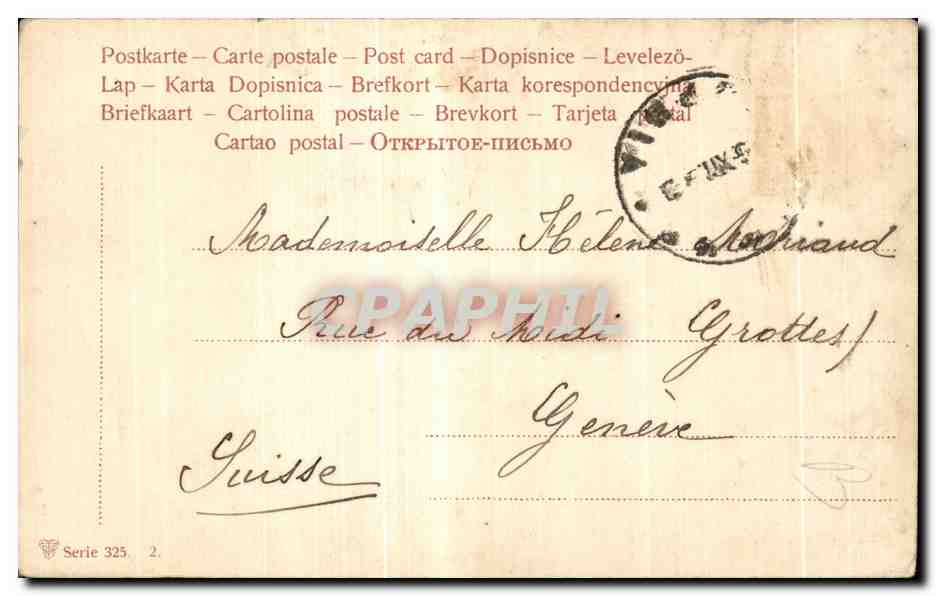 Postkarte – Carte postale – Post card – Dopisnice – Levelezö-
Lap – Karta Dopisnica – Brefkort – Karta korespondencyjna
Briefkaart – Cartolina postale – Brevkort – Tarjeta postal
Cartao postal – Открытое-письмо
Mademoiselle Hélène
Rue du Midi Grottes)
Genève
Suisse
CPAPHIL
Serie 325. 2.